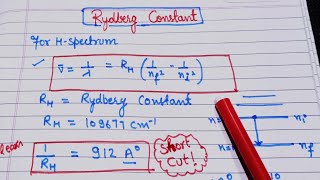 Rydberg Constant
For H-spectrum
✓ ν̄ = 1/λ = R_H (1/n_f² - 1/n_i²)
R_H = Rydberg Constant
R_H = 109677 cm⁻¹
n= n_i
1/R_H = 912 A°
Short cut!
n= n_f